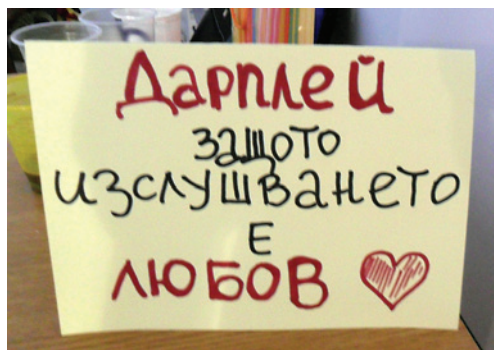 Дарплей
защото
изслушването
е
ЛЮБОВ